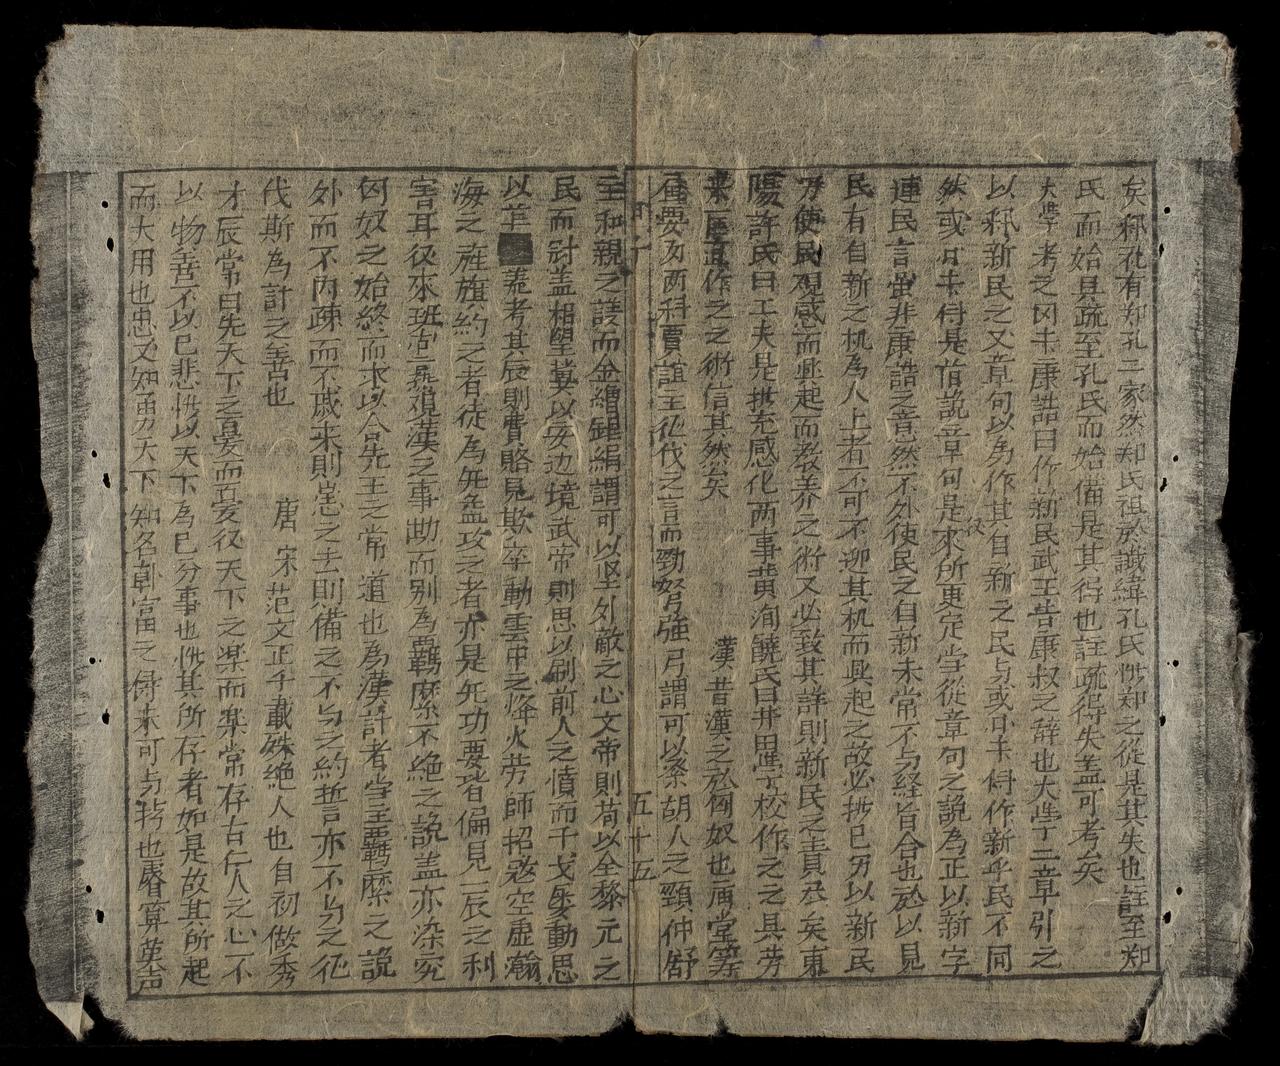 矣釈孔有知孔二家然知氏祖於讖緯孔氏惟知之從是其失也註至知
氏而始具疏至孔氏而始備是其得也註疏得失盖可考矣
大孛考之冈未康誥曰作新民武王告康叔之辞也大孛二章引之
以釈新民之又章句以為作其自新之民与或日未付作新乎民不同
然或日未付是旧說章句是來所更定堂從章句之說為正以新字
連民言虽非康誥之意然不外使民之自新未常不与经旨合也於以見
民有自新之机為人上者不可不迎其机而具起之故必推已力以新民
乃使民观感而興起而教养之術又必致其詳則新民之責尽矣東
陽許氏曰工夫是推充感化两事黄洵饒氏曰井田孛校作之之具劳
來匡直作之之術信其然矣
漢 昔漢之於匈奴也庙堂筹
画要力两科賈誼主征伐之言而勁弩強弓謂可以繫胡人之頸仲舒
五十五
主和親之議而金繒錐絹謂可以坚外敵之心文帝則苟以全黎元之
民而討盖相望莫以安边境武帝則思以刷前人之憤而干戈屡動思
以羊羗考其辰則賫賂見欺卒動雲中之烽火劳師招惑空虛瀚
海之旌旗約之者徒為无益攻之者亦是无功要皆偏見一辰之利
害耳役來班固最覌漢之事勘而别為羈縻不絶之說盖亦深究
匈奴之始終而求以合先王之常道也為漢計者堂主羈縻之說
外而不内疎而不戚来則忌之去則備之不与之約誓亦不与之征
代斯為計之善也
唐 宋 范文正千載殊絶人也自初做秀
才辰常曰先天下之憂而憂役天下之楽而楽常存古仁人之心不
以物善不以已悲惟以天下為已分事也惟其所存者如是故其所起
而大用也忠文知勇天下知名韩富之俦未可与拷也睿算英声